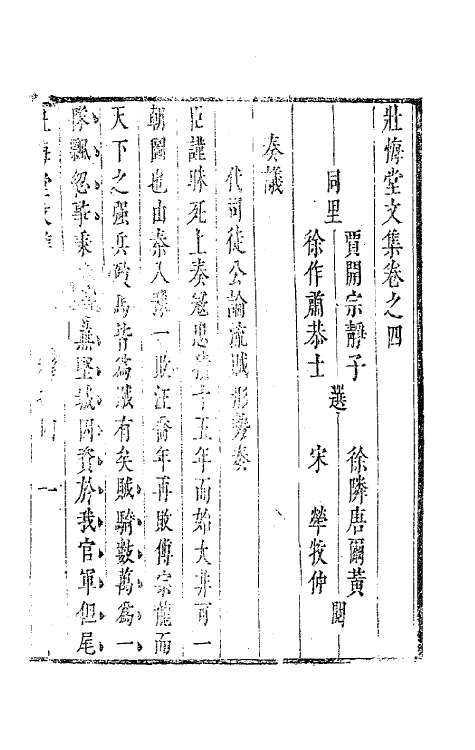 壯悔堂文集卷之四
同里
賈開宗靜子
徐作肅恭士
選
徐隣唐爾黃
宋犖牧仲
閱
奏議
代司徒公論流賊形勢奏
臣謹昧死上奏寇患積十五年而始大非可一
朝圖也由秦入豫一敗汪喬年再敗傅宗龍而
天下之强兵馬皆爲賊有矣賊騎數萬爲一
隊飄忽無堅城因資於我官軍但尾
壯悔堂文集
一